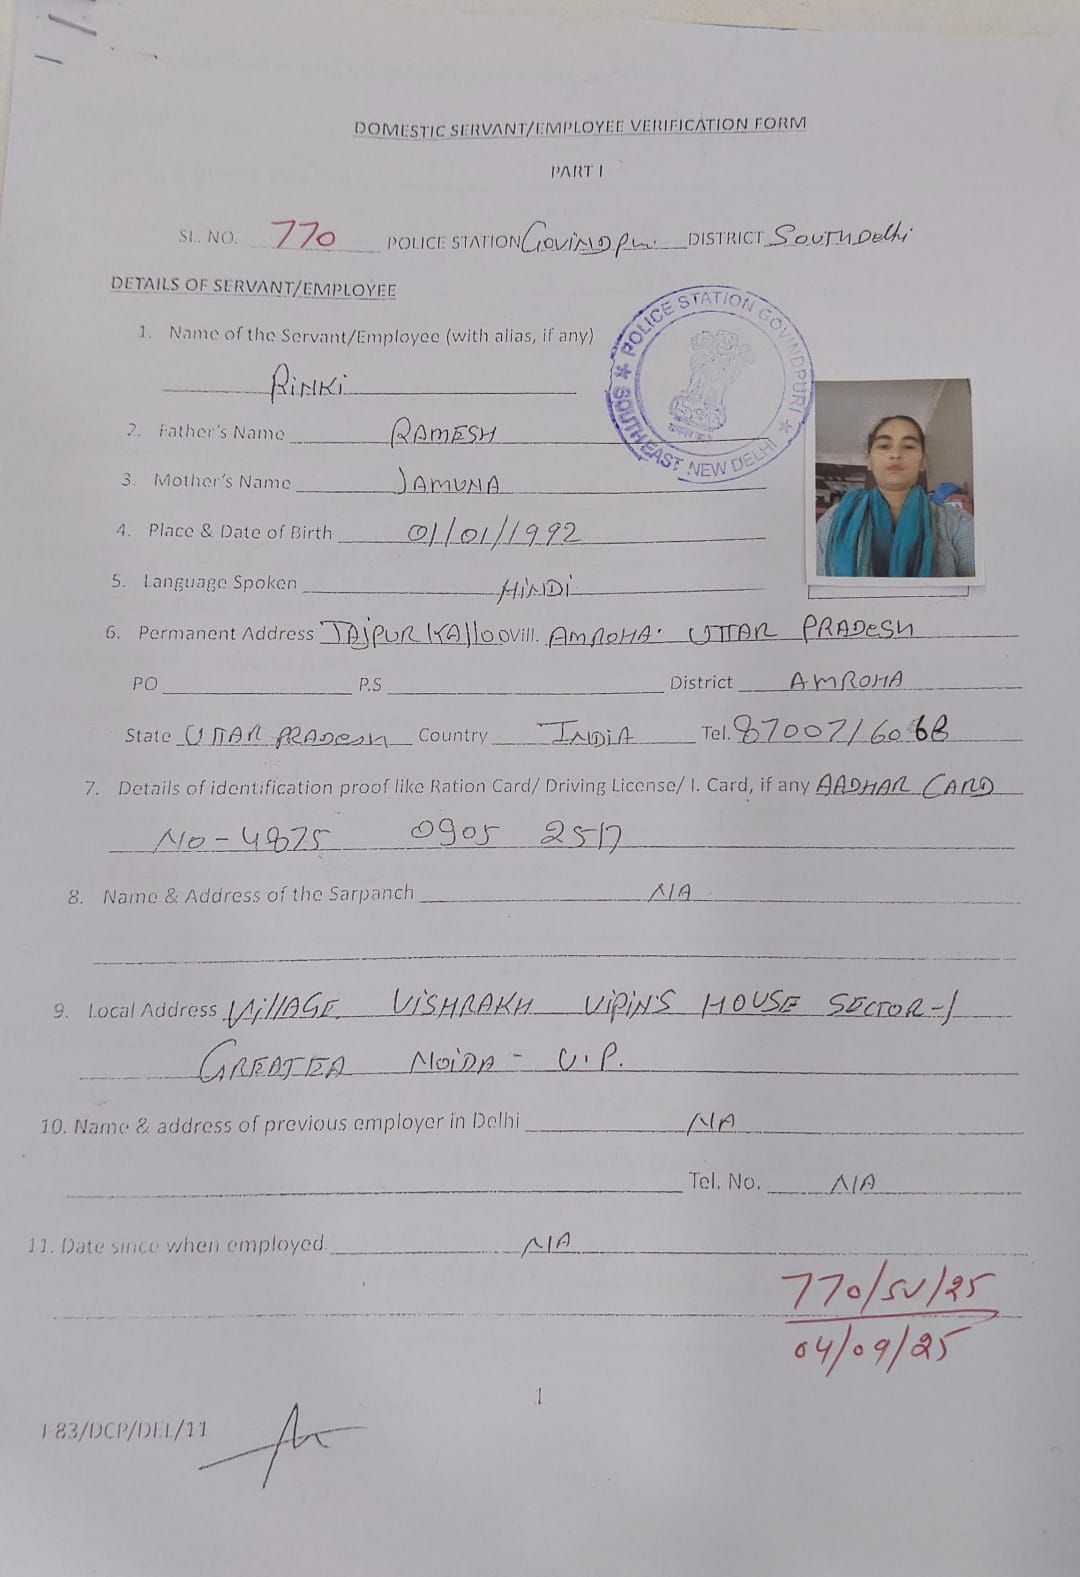 DOMESTIC SERVANT/EMPLOYEE VERIFICATION FORM
PART I
SL. NO. 770 POLICE STATION DISTRICT SOUTH Delhi
DETAILS OF SERVANT/EMPLOYEE
1. Name of the Servant/Employee (with alias, if any)
RiNKi
POLICE STATION GOVINDPURI
SOUTH EAST NEW DELHI
2. Father's Name RAMESH
3. Mother's Name JAMUNA
4. Place & Date of Birth 01/01/1992
5. Language Spoken HiNDi
6. Permanent Address TAjPUR Vill. AMROHA. UTTAR PRADESH
PO P.S District AMROHA
State UTTAR PRADESH Country INDiA Tel.
7. Details of identification proof like Ration Card/ Driving License/ I. Card, if any AADHAR CARD
No - 4875 0905 2517
8. Name & Address of the Sarpanch N/A
9. Local Address VillAGE. VISHRAKH ViPiN'S HOUSE SECTOR-1
GREATER NOiDA - U.P.
10. Name & address of previous employer in Delhi N/A
Tel. No. N/A
11. Date since when employed. N/A
770/SV/25
04/09/25
1
I-83/DCP/DEL/11